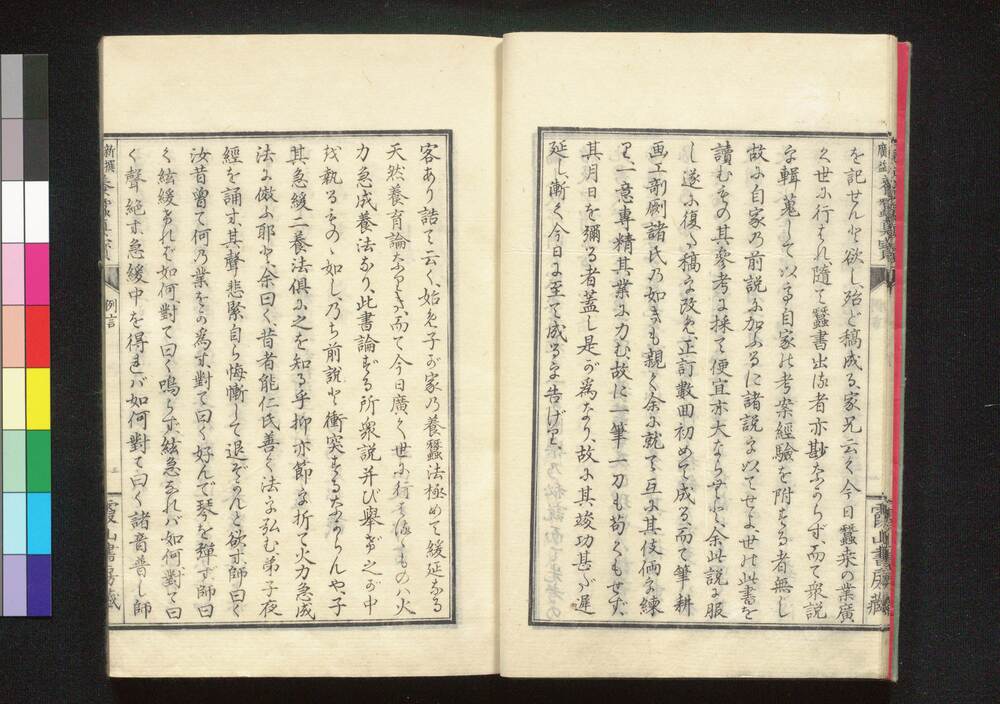 を記せんと欲し、殆ど稿成る、家兄云く今日蠶桑の業廣
く世に行はれ、隨て蠶書出る者亦尠なからず、而て衆説
を輯蒐して以て自家の考案經驗を附する者無し
故に自家の前説に加ふるに諸説を以てせよ、世の此書を
讀むもの其參考に採て便宜亦大ならむと、余此説に服
し遂に復た稿を改め、正訂數回初めて成る、而て筆耕
画工剞劂諸氏の如きも親く余に就て互に其伎倆を練
り、一意專精其業に力む、故に一筆一刀も苟くもせず
其月日を彌る者蓋し是が爲なり、故に其竣功甚だ遲
延し、漸く今日に至て成るを告げり、
霞山書房藏
客あり詰て云く、始め子が家の養蠶法極めて緩延なる
天然養育論なりき、而て今日廣く世に行はるゝものハ火
力急成養法なり、此書論ずる所衆説并び擧げ之が中
を執るものゝ如し、乃ち前説と衝突するなからんや子
其急緩二養法俱に之を知る乎抑亦節を折て火力急成
法に倣ふ耶と、余曰く、昔者能仁氏善く法を弘む弟子夜
經を誦す其聲悲緊自ら悔慚して退ぞかんと欲す師曰く
汝昔曾て何の業をか爲す對て曰く好んで琴を彈ず師曰
く絃緩なれば如何、對て曰く鳴らず、絃急なれバ如何、對て曰
く聲絶す急緩中を得れバ如何對て曰く諸音普し師
新撰
例言
霞山書房藏